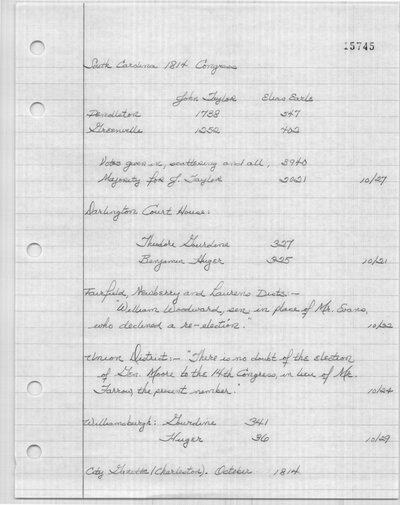 15745
South Carolina 1814 Congress
John Taylor Elias Earle
Pendleton 1738 547
Greenville 1252 402
Votes given in, scattering and all, 3940
Majority for J. Taylor 2021 10/27
Darlington Court House:
Theodore Gourdine 327
Benjamin Huger 325 10/21
Fairfield, Newberry and Laurens Dists:-
"William Woodward, sen. in place of Mr. Evans,
who declined a re-election." 10/22
Union District:- "There is no doubt of the election
of Gen. Moore to the 14th Congress, in lieu of Mr.
Farrow, the present member." 10/24
Williamsburgh: Gourdine 341
Huger 36 10/29
City Gazette (Charleston). October 1814